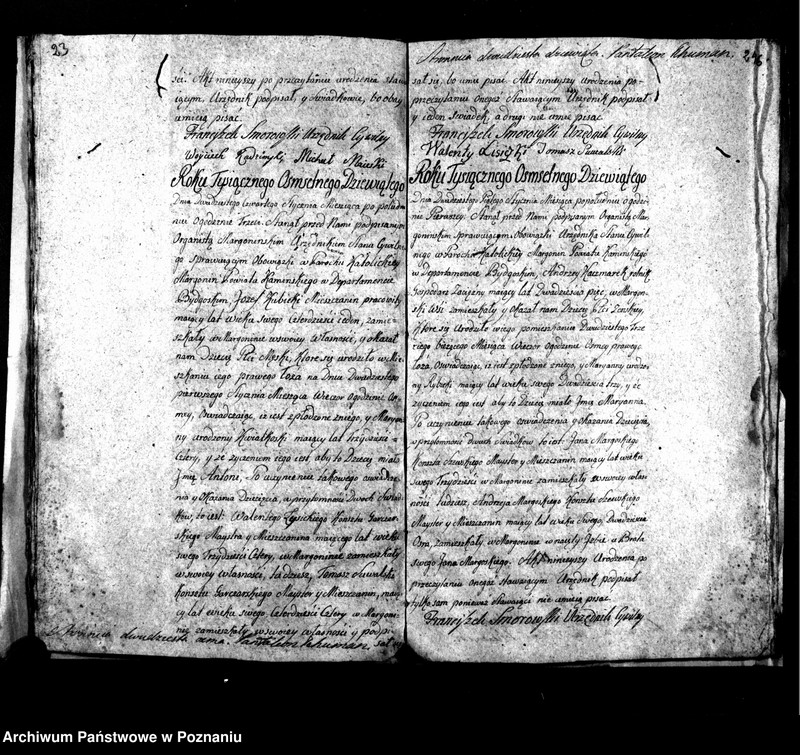 23
ści. Akt ninieyszy po przeczytaniu urodzenia stawa
iącym, Urzędnik podpisał, y świadkowie, bo obay
umieią pisać.
Franciszek Smorowski Urzędnik Cywilny
Woyciech Michał
Roku Tysiącznego Osmsetnego Dziewiątego
Dnia Dwudziestego Czwartego Stycznia Miesiąca po połud
niu Ogodzinie Trzeci. Stanął przed Nami podpisanym
Organistą Margoninskim Urzędnikiem Stanu Cywilne
go sprawuiącym Obowiązki w Parochii Katolickiey
Margonin Powiatu Kaminskiego w Departamencie
Bydgoskim, Jozef Kubicki Mieszczanin pracowity
maiący lat wieku swego Czterdzieści ieden, zamie
szkały w Margoninie w swoiey własności, y okazał
nam Dziecię Płci Męski, które się urodziło w Mie
szkaniu iego prawego łoża na Dniu Dwudziestego
pierwszego Stycznia Miesiąca Wieczor Ogodzinie Os
my, Oswiadczaiąc, iż iest z płodzone z niego, y Maryan
ny urodzony Kwiatkoski maiący lat trzydzieści
Cztery, y że życzeniem iego iest aby to Dziecię miało
Imię Antoni, Po uczynieniu takowego oswiadcze
nia y Okazania Dziecięcia, w przytomności Dwoch Swiad
ków, to iest: Walentego Kunsztu Garcar
skiego Maystra y Mieszczanina maiącego lat wieku
swego Trzydzieści Cztery, w Margoninie zamieszkały
w swoiey własności, tudziesz, Tomasz Suwalski
Konsztu Garczarskiego Mayster y Mieszczanin, maią
cy lat wieku swego, Czterdzieści Cztery, w Margoni
nie zamieszkały w swoiey własności y podpi
dwudziesta osma. Pantaleon Szuman
sał się
Stronnica dwudziesta dziewiąta. Pantaleon Szuman. 24
sał się, bo umie pisać. Akt ninieyszy urodzenia po
przeczytaniu onegoż Stawaiącym Urzędnik podpisał
y ieden Swiadek, a drugi nie umie pisać.
Franciszek Smorowski Urzędnik Cywilny
Walenty Tomasz Suwalski
Roku Tysiącznego Osmsetnego Dziewiątego
Dnia Dwudziestego Piątego Stycznia Miesiąca popołudniu ogodzi
nie Pierwszy. Stanął przed Nami podpisanym Organistą Mar
goninskim Sprawuiącym Obowiązki Urzędnika Stanu Cywil
nego w Parochii Katolickiey Margonin Powiatu Kaminskiego
w Departamencie Bydgoskim, Andrzey Kaczmarek
Gospodarz maiący lat Dwadzieścia pięć, w Margon
ski Wsi zamieszkały y okazał nam Dziecię Płci Zenskiey,
Które się urodziło w iego pomieszkaniu Dwudziestego Trze
ciego bieżącego Miesiąca Wieczor Ogodzinie Osmey prawego
łoża, Oswiadczaiąc, iż iest z płodzone z niego, y Maryanny urodzo
ny maiący lat wieku swego Dwadzieścia trzy, y że
życzeniem iego iest aby to Dziecię miało Imię Maryanna.
Po uczynieniu takowego oswiadczenia y okazania Dziecięcia,
w przytomności dwoch Swiadków to iest: Jana Margoskiego
Konsztu Szewskiego Mayster y Mieszczanin maiący lat wieku
swego Trzydzieści w Margoninie zamieszkały w swoiey włas
ności tudziesz, Andrzeja Margoskiego Konsztu Szewskiego
Mayster y Mieszczanin maiący lat wieku Swego, Dwadzieścia
Osm, zamieszkały, w Margoninie w naiętey Izbie u Brata
swego Jana Margoskiego. Akt ninieyszy Urodzenia po
przeczytaniu onegoż stawaiącym Urzędnik podpisał
tylko sam ponieważ stawaiący nie umieią pisać.
Franciszek Smorowski Urzędnik Cywilny
Archiwum Państwowe w Poznaniu